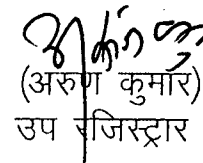 (अरुण कुमार)
उप रजिस्ट्रार